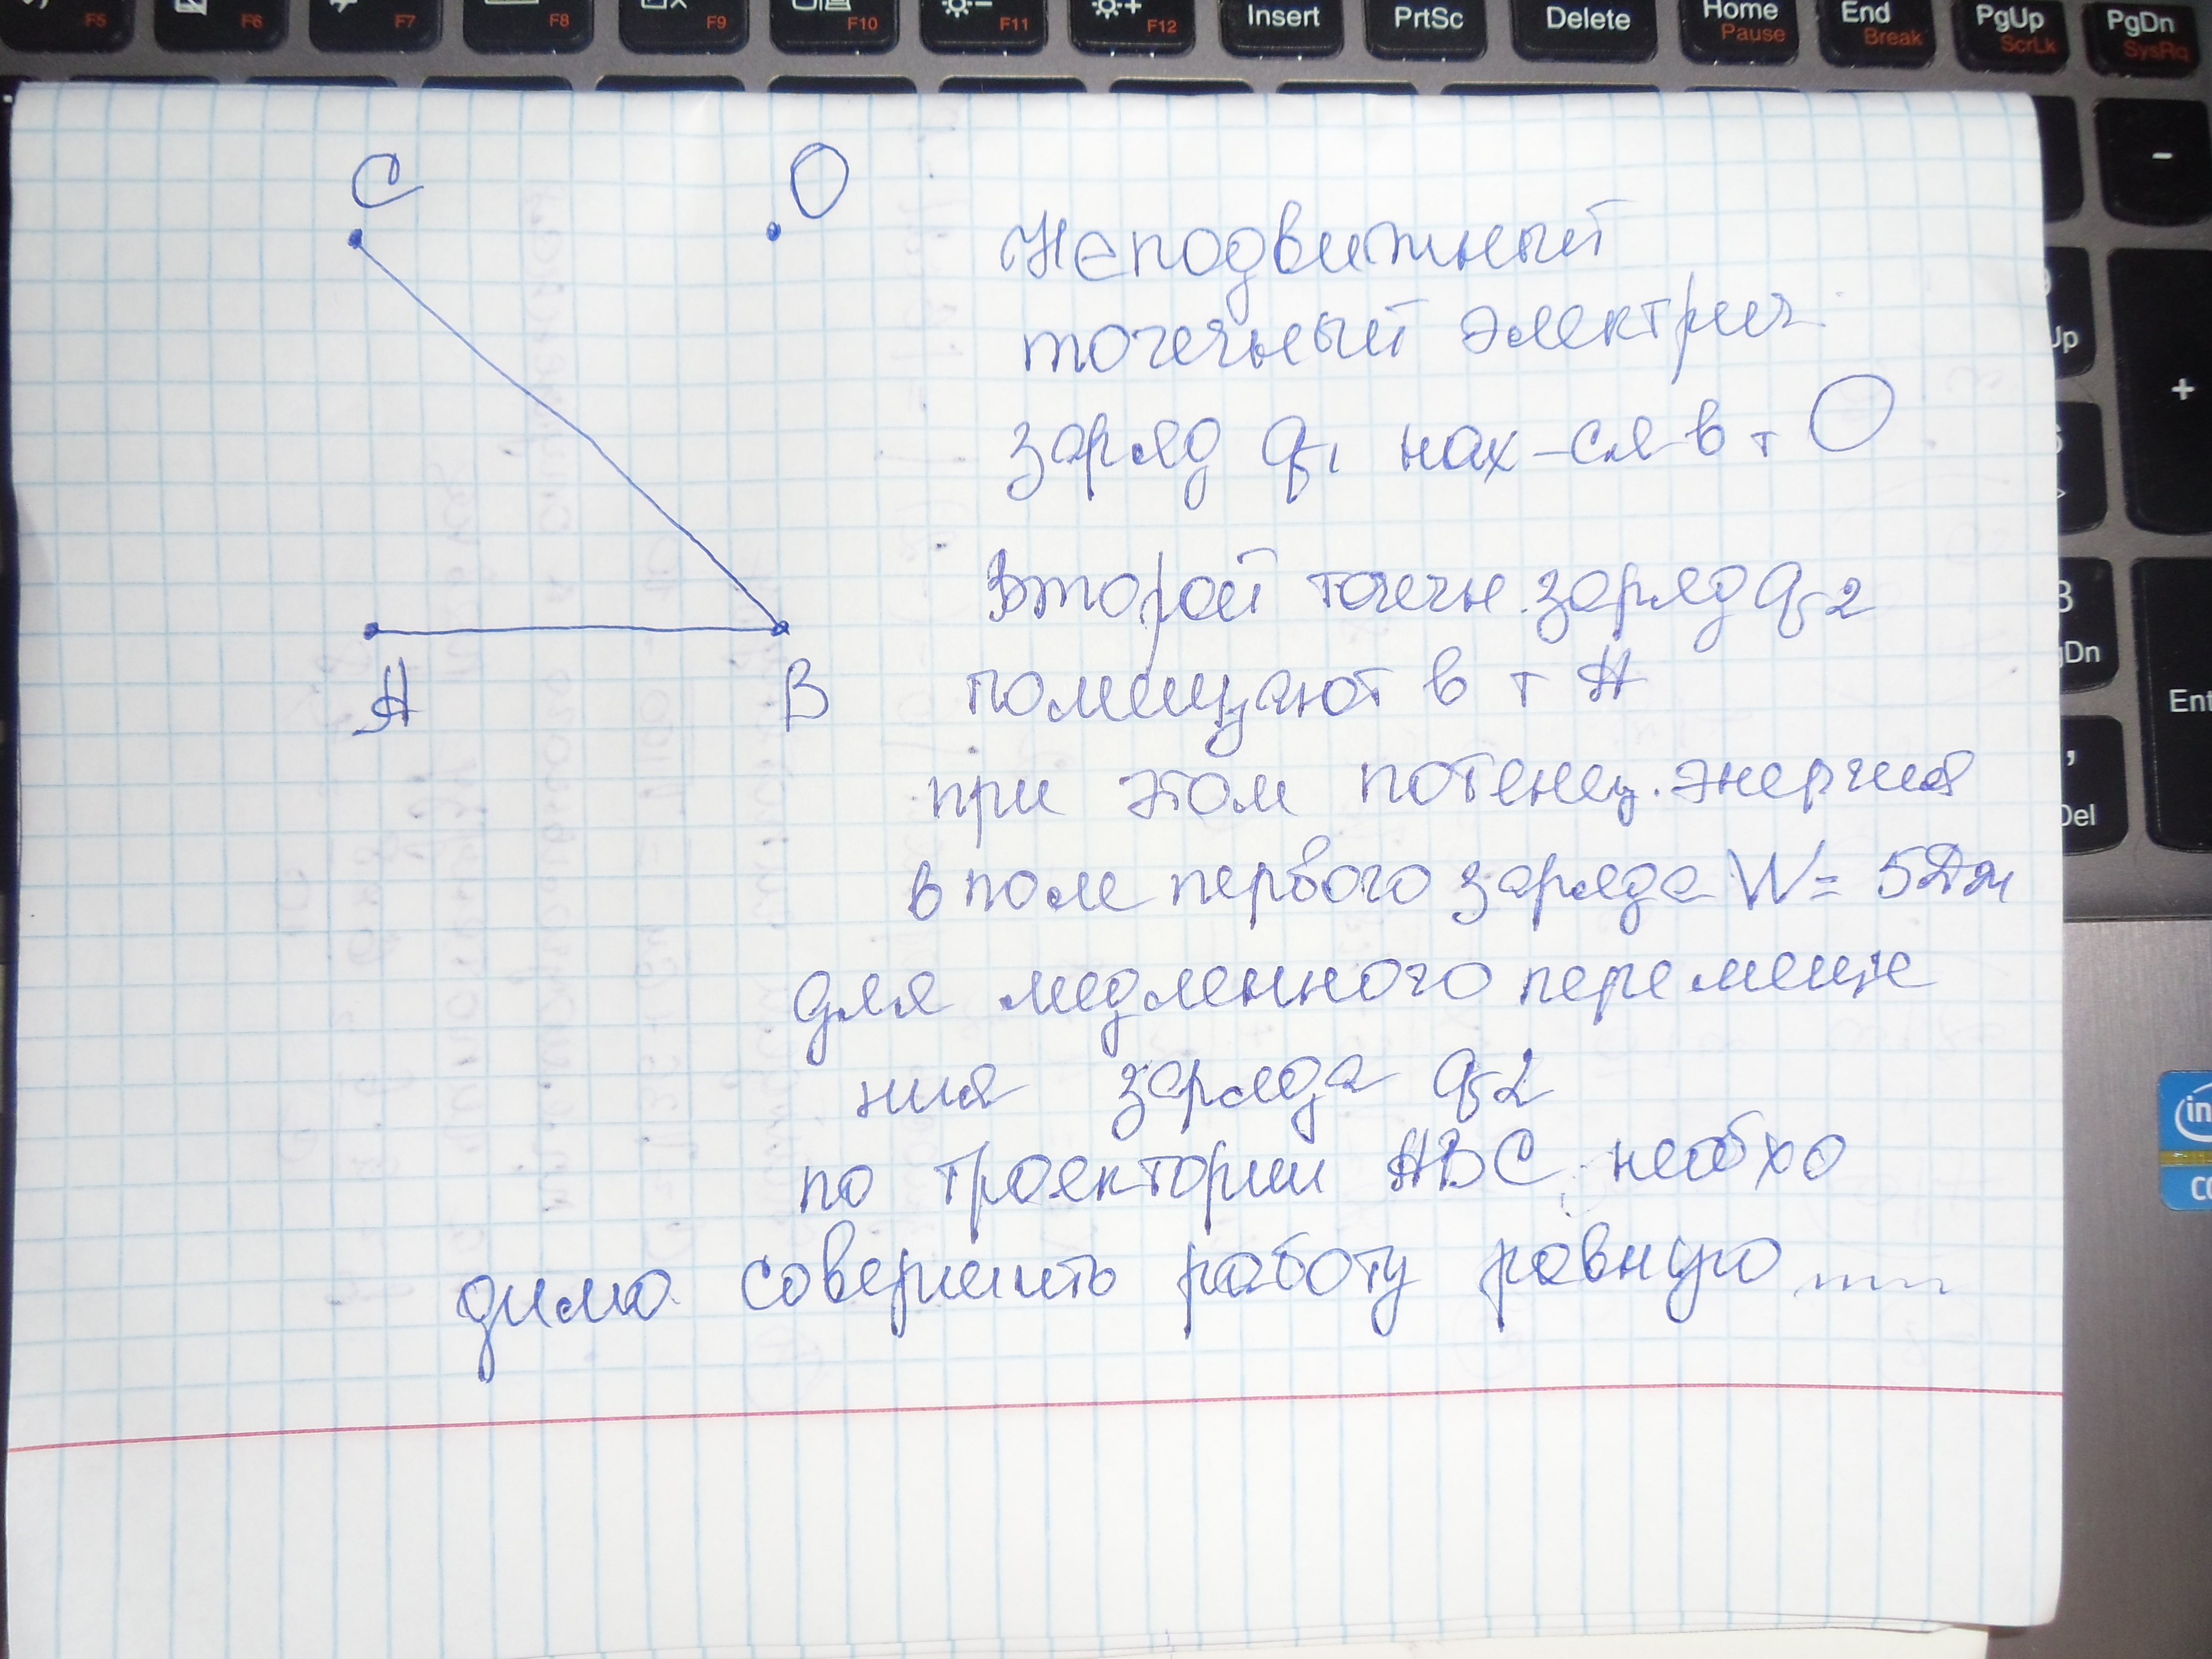 F5 F6 F7 F8 F9 F10 F11 F12 Insert PrtSc Delete Home Pause End Break PgUp ScrLk PgDn SysRq
С О
Неподвижный
точечный электрич.
заряд q1 нах-ся в т О
Второй точечн. заряд q2
А В помещают в т А
при этом потенц. энергия
в поле первого заряда W = 5Дж
для медленного перемеще
ния заряда q2
по траектории АВС, необхо
димо совершить работу равную .....
-
+
Up
PgDn
Del
Ent
in